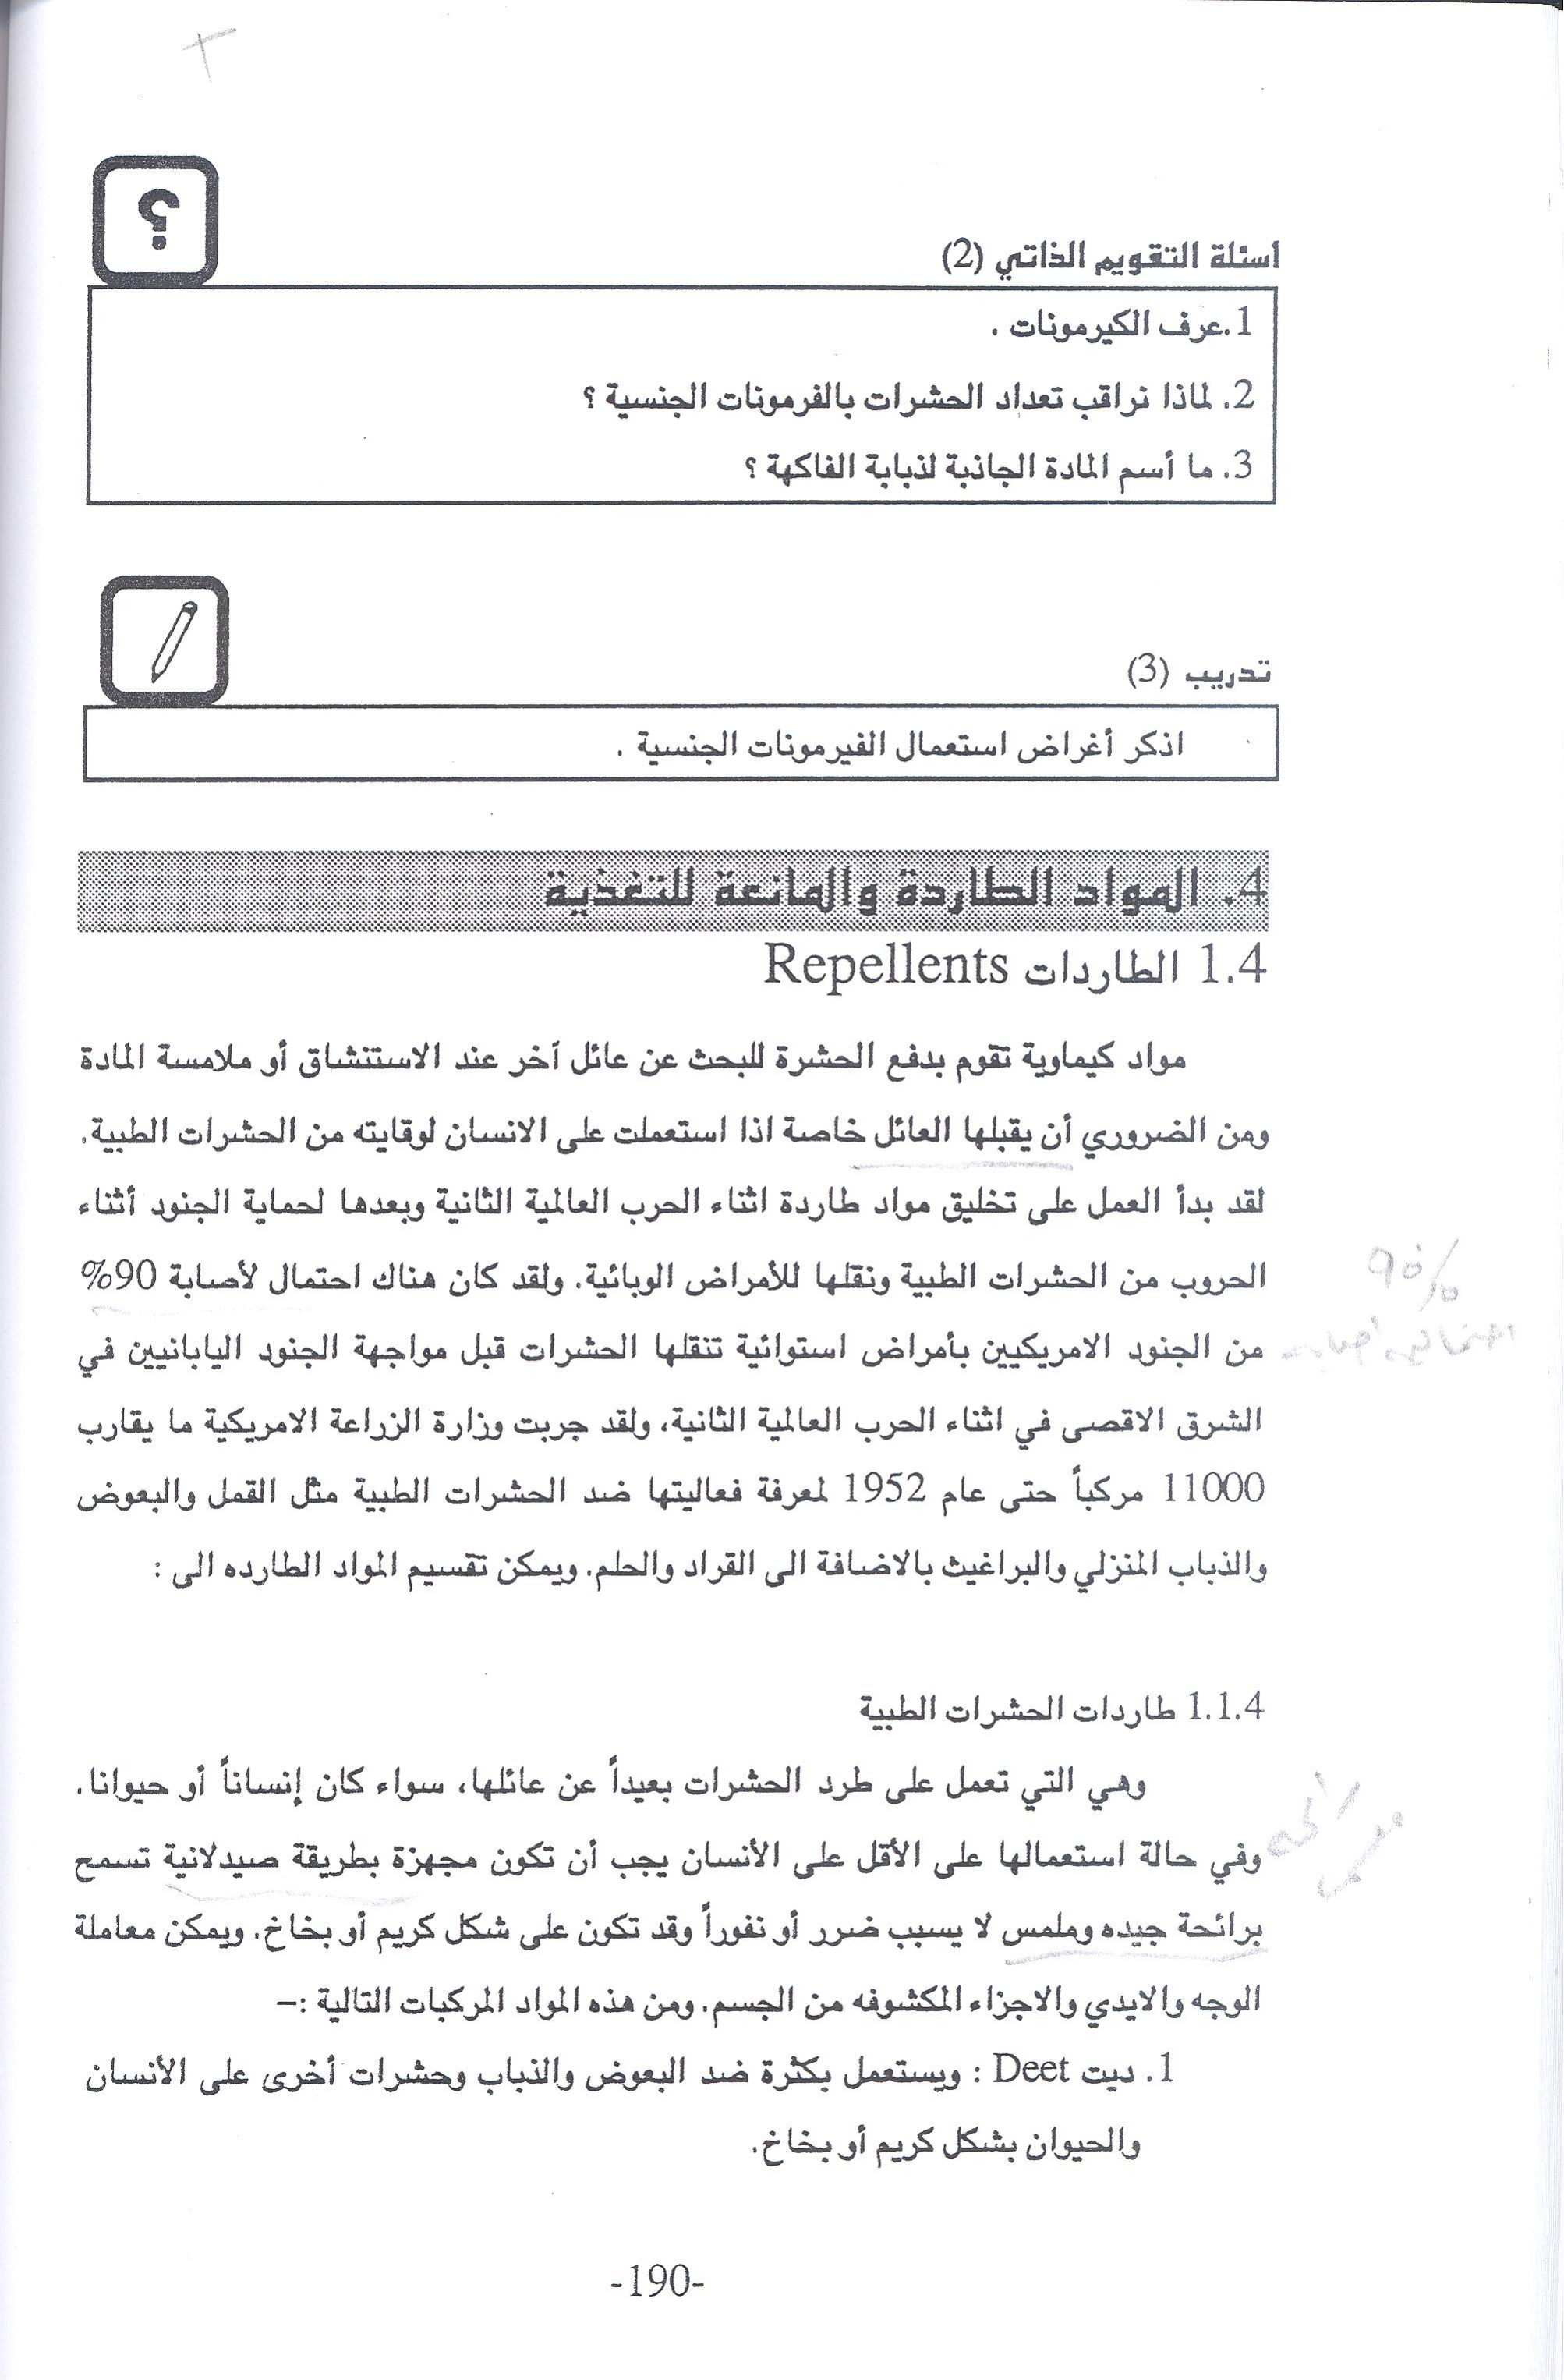 ؟
اسئلة التقويم الذاتي (2)
1.عرف الكيرمونات .
2. لماذا نراقب تعداد الحشرات بالفرمونات الجنسية ؟
3. ما أسم المادة الجاذبة لذبابة الفاكهة ؟
تدريب (3)
اذكر أغراض استعمال الفيرمونات الجنسية .
4. المواد الطاردة والمانعة للتغذية
1.4 الطاردات Repellents
مواد كيماوية تقوم بدفع الحشرة للبحث عن عائل آخر عند الاستنشاق أو ملامسة المادة
ومن الضروري أن يقبلها العائل خاصة اذا استعملت على الانسان لوقايته من الحشرات الطبية.
لقد بدأ العمل على تخليق مواد طاردة اثناء الحرب العالمية الثانية وبعدها لحماية الجنود أثناء
الحروب من الحشرات الطبية ونقلها للأمراض الوبائية. ولقد كان هناك احتمال لأصابة 90%
90%
من الجنود الامريكيين بأمراض استوائية تنقلها الحشرات قبل مواجهة الجنود اليابانيين في
الشرق الاقصى في اثناء الحرب العالمية الثانية، ولقد جربت وزارة الزراعة الامريكية ما يقارب
11000 مركباً حتى عام 1952 لمعرفة فعاليتها ضد الحشرات الطبية مثل القمل والبعوض
والذباب المنزلي والبراغيث بالاضافة الى القراد والحلم. ويمكن تقسيم المواد الطارده الى :
1.1.4 طاردات الحشرات الطبية
وهي التي تعمل على طرد الحشرات بعيداً عن عائلها، سواء كان إنساناً أو حيوانا.
وفي حالة استعمالها على الأقل على الأنسان يجب أن تكون مجهزة بطريقة صيدلانية تسمح
برائحة جيده وملمس لا يسبب ضرر أو نفوراً وقد تكون على شكل كريم أو بخاخ. ويمكن معاملة
الوجه والايدي والاجزاء المكشوفه من الجسم. ومن هذه المواد المركبات التالية :–
1. ديت Deet : ويستعمل بكثرة ضد البعوض والذباب وحشرات أخرى على الأنسان
والحيوان بشكل كريم أو بخاخ.
-190-